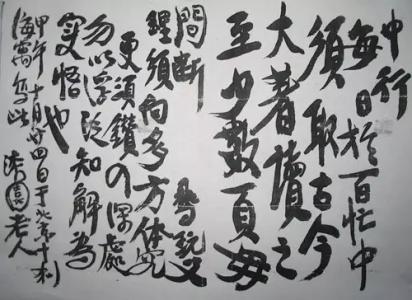 中行
每日於百忙中
須取古今
大著讀之
至少數頁毋
間斷 尋玩义
理須向多方体究
更須鑽入深處
勿以浮泛知解為
實悟也
甲午十月廿四日于北京十刹
海寓写此 漆園老人